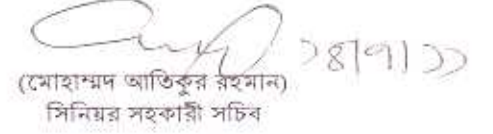 ১৪/৭/১১
(মোহাম্মদ আতিকুর রহমান)
সিনিয়র সহকারী সচিব